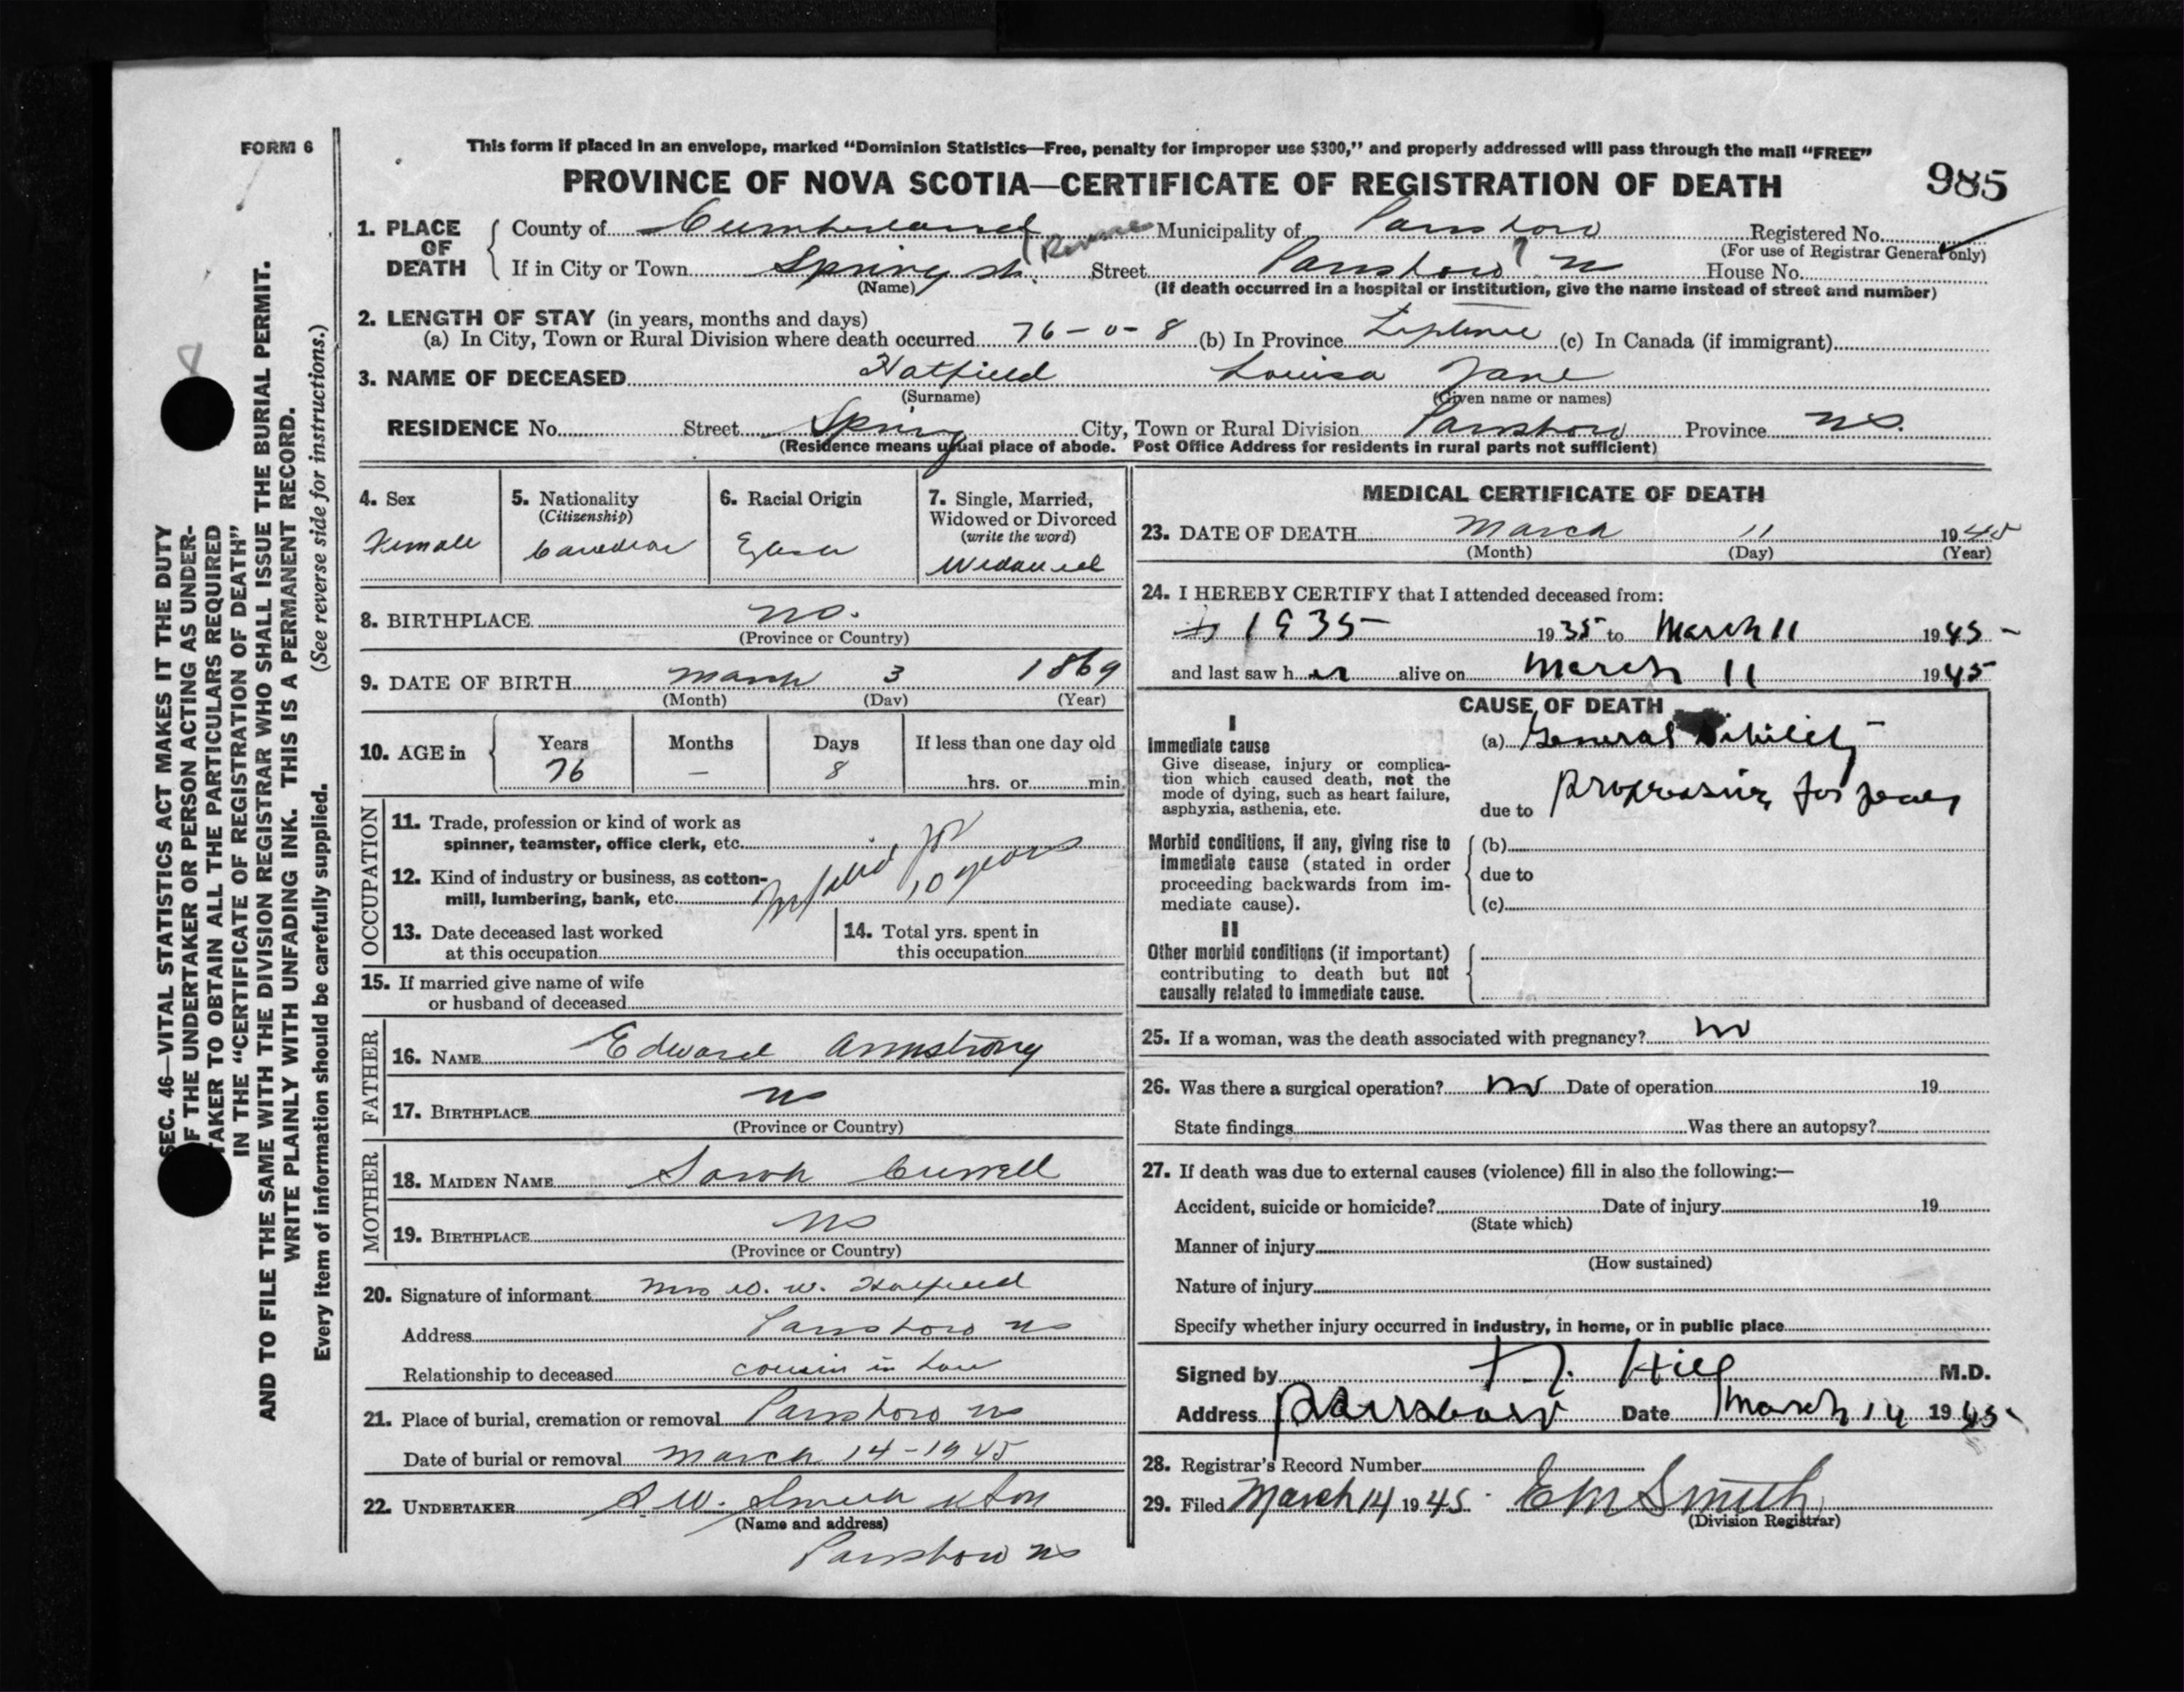 FORM 6
This form if placed in an envelope, marked "Dominion Statistics—Free, penalty for improper use $300," and properly addressed will pass through the mail "FREE"
PROVINCE OF NOVA SCOTIA—CERTIFICATE OF REGISTRATION OF DEATH 985
1. PLACE OF DEATH County of Cumberland Municipality of Parrsboro Registered No.
(Reverse ?
(For use of Registrar General only)
If in City or Town Spring st. Street Parrsboro NS House No.
(Name) (If death occurred in a hospital or institution, give the name instead of street and number)
2. LENGTH OF STAY (in years, months and days)
(a) In City, Town or Rural Division where death occurred 76-0-8 (b) In Province Liftime (c) In Canada (if immigrant)
3. NAME OF DECEASED Hatfield Louisa Jane
(Surname) (Given name or names)
RESIDENCE No. Street Spring City, Town or Rural Division Parrsboro Province NS.
(Residence means usual place of abode. Post Office Address for residents in rural parts not sufficient)
4. Sex Female
5. Nationality (Citizenship) Canadian
6. Racial Origin
7. Single, Married, Widowed or Divorced (write the word) Widowed
8. BIRTHPLACE NS.
(Province or Country)
9. DATE OF BIRTH March 3 1869
(Month) (Day) (Year)
10. AGE in Years Months Days If less than one day old
76 — 8 hrs. or min.
OCCUPATION
11. Trade, profession or kind of work as spinner, teamster, office clerk, etc.
12. Kind of industry or business, as cotton-mill, lumbering, bank, etc.
Invalid for
10 years
13. Date deceased last worked at this occupation
14. Total yrs. spent in this occupation
15. If married give name of wife or husband of deceased
FATHER
16. NAME Edward Armstrong
17. BIRTHPLACE NS
(Province or Country)
MOTHER
18. MAIDEN NAME Sarah Currell
19. BIRTHPLACE NS
(Province or Country)
20. Signature of informant Mrs D. W. Hatfield
Address Parrsboro NS
Relationship to deceased cousin in law
21. Place of burial, cremation or removal Parrsboro NS
Date of burial or removal March 14-1945
22. UNDERTAKER S.W. Smith & Son
(Name and address)
Parrsboro NS
MEDICAL CERTIFICATE OF DEATH
23. DATE OF DEATH March 11 1945
(Month) (Day) (Year)
24. I HEREBY CERTIFY that I attended deceased from:
1935 1935 to March 11 1945
and last saw her alive on March 11 1945
CAUSE OF DEATH
I
Immediate cause
Give disease, injury or complication which caused death, not the mode of dying, such as heart failure, asphyxia, asthenia, etc.
(a) General Dibility
due to progressing for years
Morbid conditions, if any, giving rise to immediate cause (stated in order proceeding backwards from immediate cause).
(b)
due to
(c)
II
Other morbid conditions (if important) contributing to death but not causally related to immediate cause.
25. If a woman, was the death associated with pregnancy? no
26. Was there a surgical operation? no Date of operation 19
State findings Was there an autopsy?
27. If death was due to external causes (violence) fill in also the following:—
Accident, suicide or homicide? Date of injury 19
(State which)
Manner of injury
(How sustained)
Nature of injury
Specify whether injury occurred in industry, in home, or in public place
Signed by Hill M.D.
Address Parrsboro Date March 14 1945
28. Registrar's Record Number
29. Filed March 14 1945. EM Smith
(Division Registrar)
SEC. 46—VITAL STATISTICS ACT MAKES IT THE DUTY
OF THE UNDERTAKER OR PERSON ACTING AS UNDER-
TAKER TO OBTAIN ALL THE PARTICULARS REQUIRED
IN THE "CERTIFICATE OF REGISTRATION OF DEATH"
AND TO FILE THE SAME WITH THE DIVISION REGISTRAR WHO SHALL ISSUE THE BURIAL PERMIT.
WRITE PLAINLY WITH UNFADING INK. THIS IS A PERMANENT RECORD.
Every item of information should be carefully supplied. (See reverse side for instructions.)